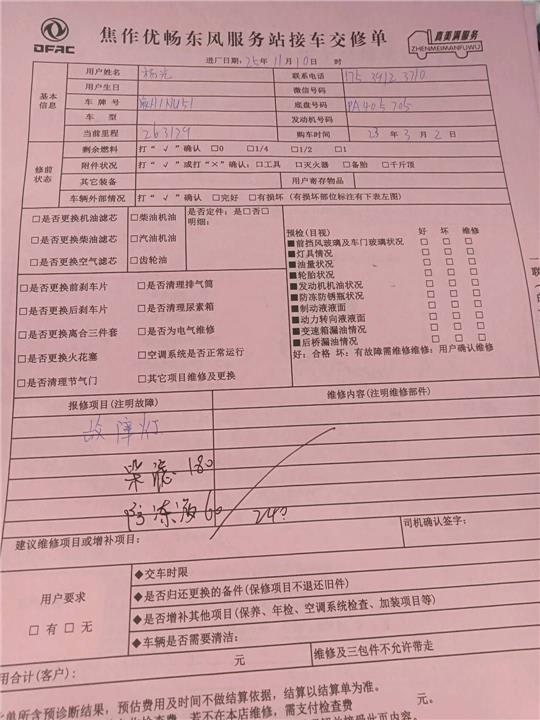 DFAC
焦作优畅东风服务站接车交修单
真美满服务
ZHENMEIMANFUWU
进厂日期: 25年11月10日 时
基本信息
用户姓名 杨光 联系电话 175 3912 3710
用户生日 微信号码
车牌号 底盘号码 PA405705
车型 发动机号码
当前里程 263179 购车时间 23年3月2日
修前状态
剩余燃料 打“√”确认 □0 □1/4 □1/2 □1
附件状况 打“√”或打“×”确认：□工具 □灭火器 □备胎 □千斤顶
其它装备 用户寄存物品
车辆外部情况 打“√”确认 □完好 □有损坏 (有损坏部位标注有下表左图)
□是否更换机油滤芯 □柴油机油 是否定件：是□否□
明细：
□是否更换柴油滤芯 □汽油机油
□是否更换空气滤芯 □齿轮油
预检(目视) 好 坏 维修
■前挡风玻璃及车门玻璃状况 □ □ □
■灯具情况 □ □ □
■油量状况 □ □ □
■轮胎状况 □ □ □
■发动机机油状况 □ □ □
■防冻防锈瓶状况 □ □ □
■制动液液面 □ □ □
■动力转向液液面 □ □ □
■变速箱漏油情况 □ □ □
■后桥漏油情况 □ □ □
好：合格 坏：有故障需维修维修：用户确认维修
□是否更换前刹车片 □是否清理排气筒
□是否更换后刹车片 □是否清理尿素箱
□是否更换离合三件套 □是否为电气维修
□是否更换火花塞 □空调系统是否正常运行
□是否清理节气门 □其它项目维修及更换
报修项目(注明故障) 维修内容(注明维修部件)
故障灯
柴滤 180
防冻液 60
建议维修项目或增补项目： 司机确认签字：
用户要求
□有□无
◆交车时限
◆是否归还更换的备件(保修项目不退还旧件)
◆是否增补其他项目(保养、年检、空调系统检查、加装项目等)
◆车辆是否需要清洁：
元 维修及三包件不允许带走
用合计(客户)：
单所含预诊断结果，预估费用及时间不做结算依据，结算以结算单为准。
若不在本店维修，需支付检查费 元。